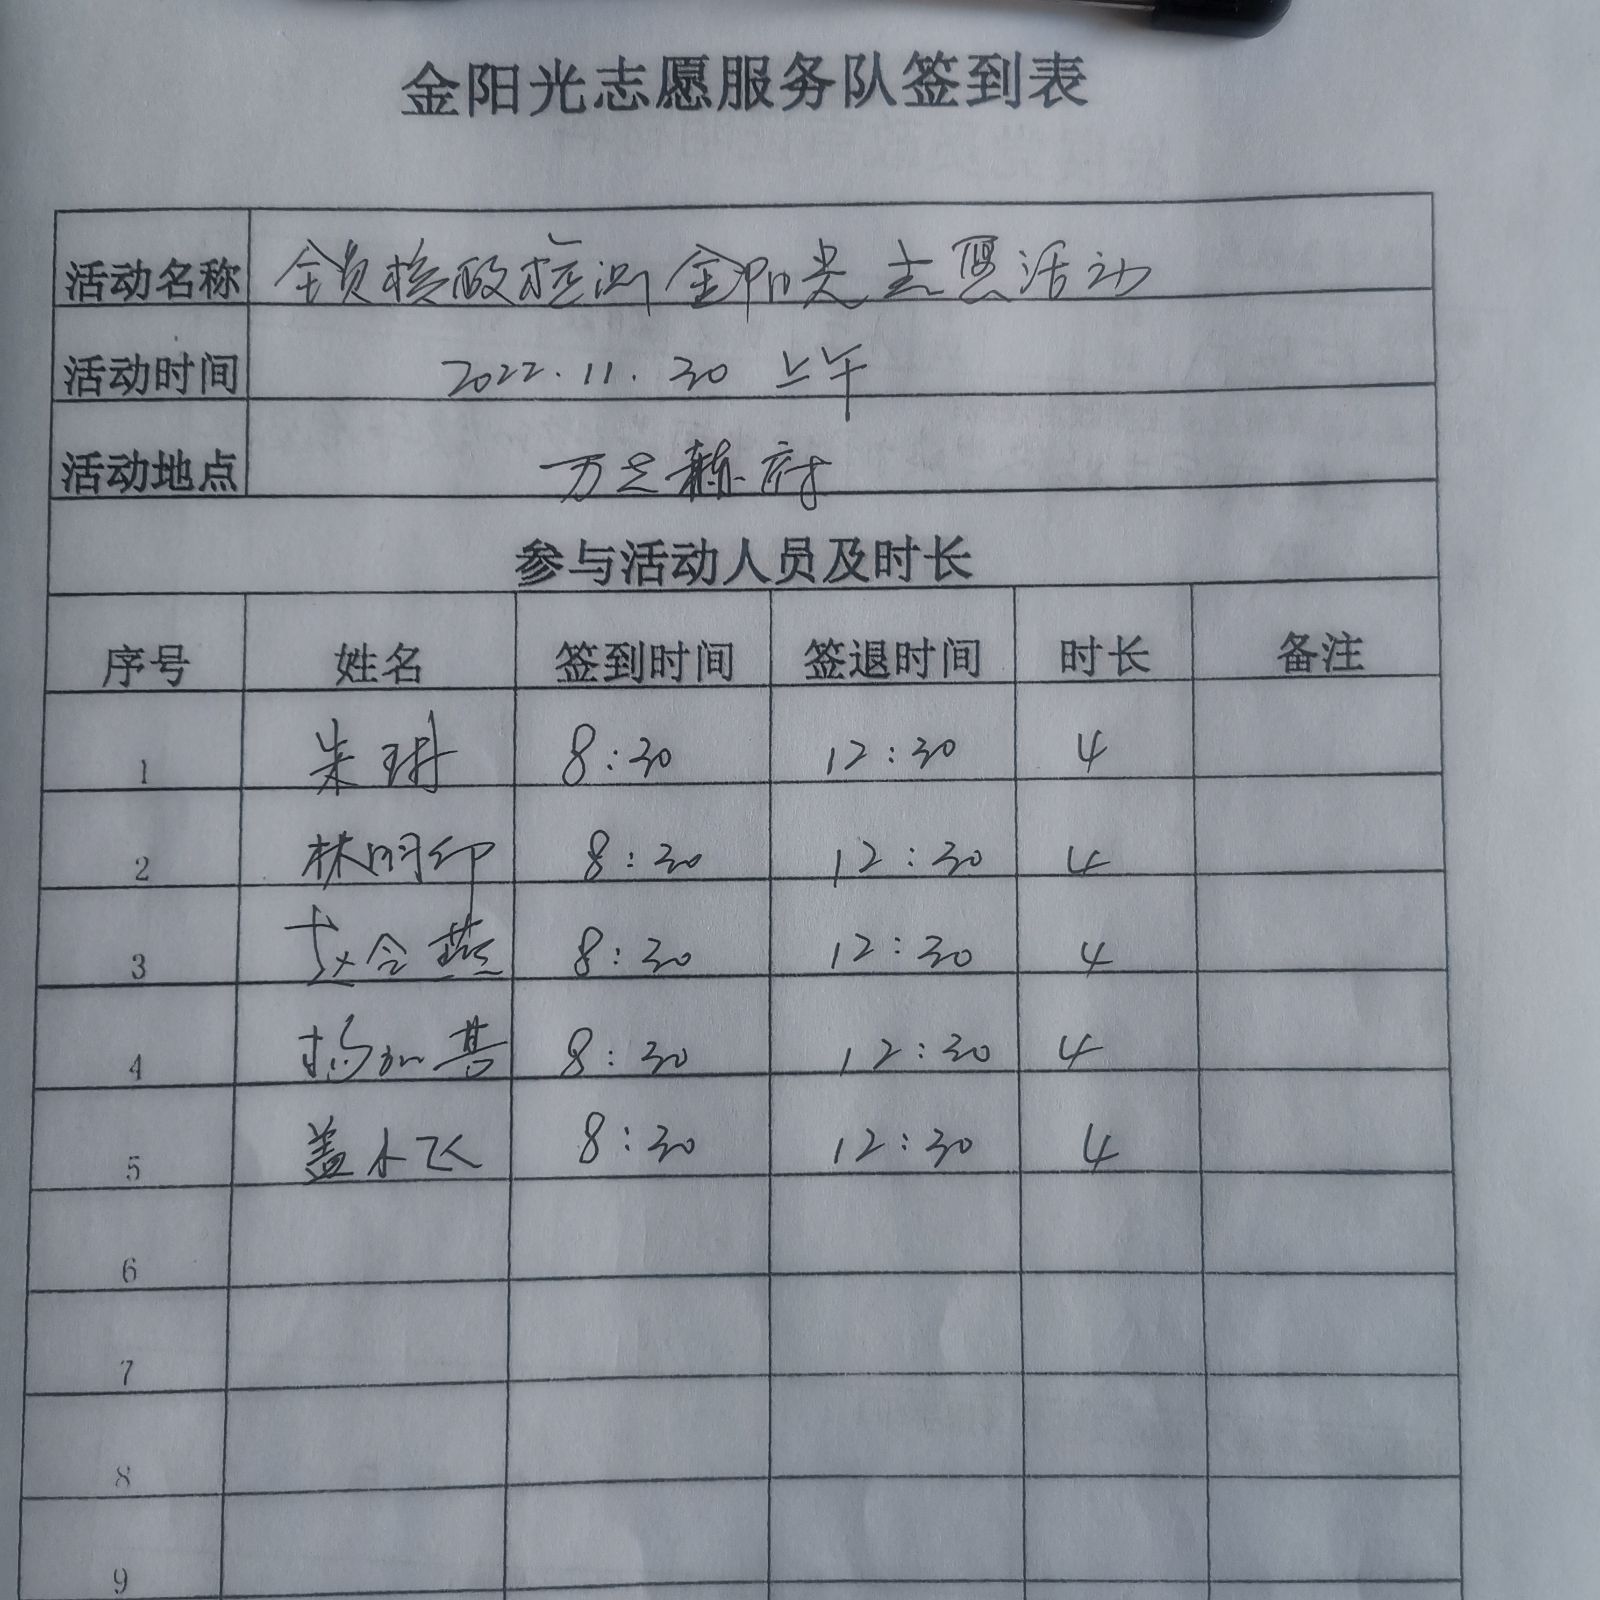 金阳光志愿服务队签到表
活动名称 全员核酸检测金阳光志愿活动
活动时间 2022.11.30 上午
活动地点 万 府
参与活动人员及时长
序号 姓名 签到时间 签退时间 时长 备注
1 朱玥 8:30 12:30 4
2 林明印 8:30 12:30 4
3 赵会燕 8:30 12:30 4
4 杨加 8:30 12:30 4
5 盖小飞 8:30 12:30 4
6
7
8
9